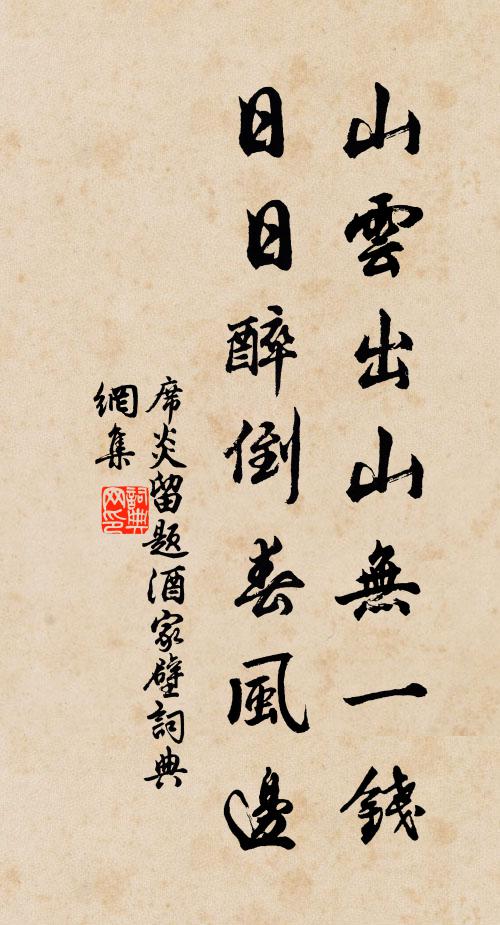 山雲出山無一錢
日日醉倒春風邊
席炎留題酒家壁詞典
網集
詞典
网印